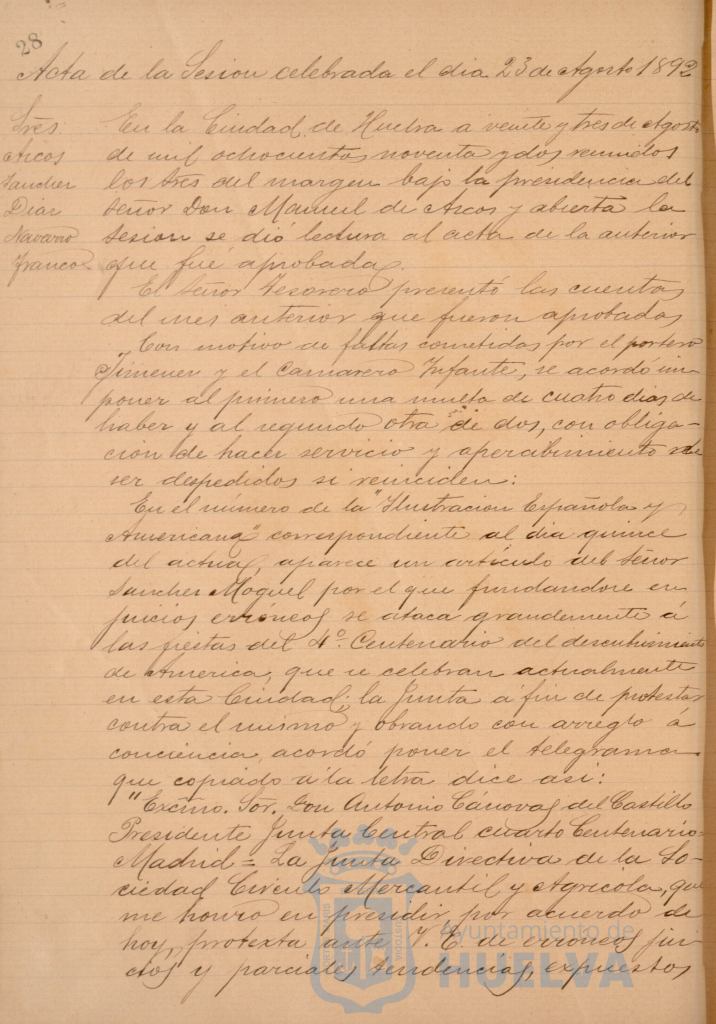 28
Acta de la Sesion celebrada el dia 23 de Agosto 1892
Srēs.
Arcos
Sanchez
Diaz
Navarro
Franco
En la Ciudad de Huelva a veinte y tres de Agosto
de mil ochocientos noventa y dos reunidos
los srēs del margen bajo la presidencia del
señor Don Manuel de Arcos y abierta la
sesion se dió lectura al acta de la anterior
que fué aprobada.
El señor tesorero presentó las cuentas
del mes anterior que fueron aprobadas
Con motivo de faltas cometidas por el portero
Jimenez y el camarero Infante, se acordó im
poner al primero una multa de cuatro dias de
haber y al segundo otra de dos, con obliga-
cion de hacer servicio y apercibimiento de
ser despedidos si reinciden:
En el número de la "Ilustracion Española y
Americana" correspondiente al dia quince
del actual, aparece un artículo del señor
Sanchez Moguel por el que fundandose en
juicios erróneos se ataca grandemente á
las fiestas del 4º. Centenario del descubrimiento
de America, que se celebran actualmente
en esta Ciudad; la Junta á fin de protestar
contra el mismo y obrando con arreglo a
conciencia, acordó poner el telegrama
que copiado á la letra dice asi:
"Excmo. Sor. Don Antonio Cánovas del Castillo
Presidente Junta Central cuarto Centenario
Madrid = La Junta Directiva de la So-
ciedad Circulo Mercantil y Agricola, que
me honro en presidir, por acuerdo de
hoy, protexta ante V. E. de erroneos jui
cios y parciales tendencias, expuestos
Ayuntamiento de
HUELVA